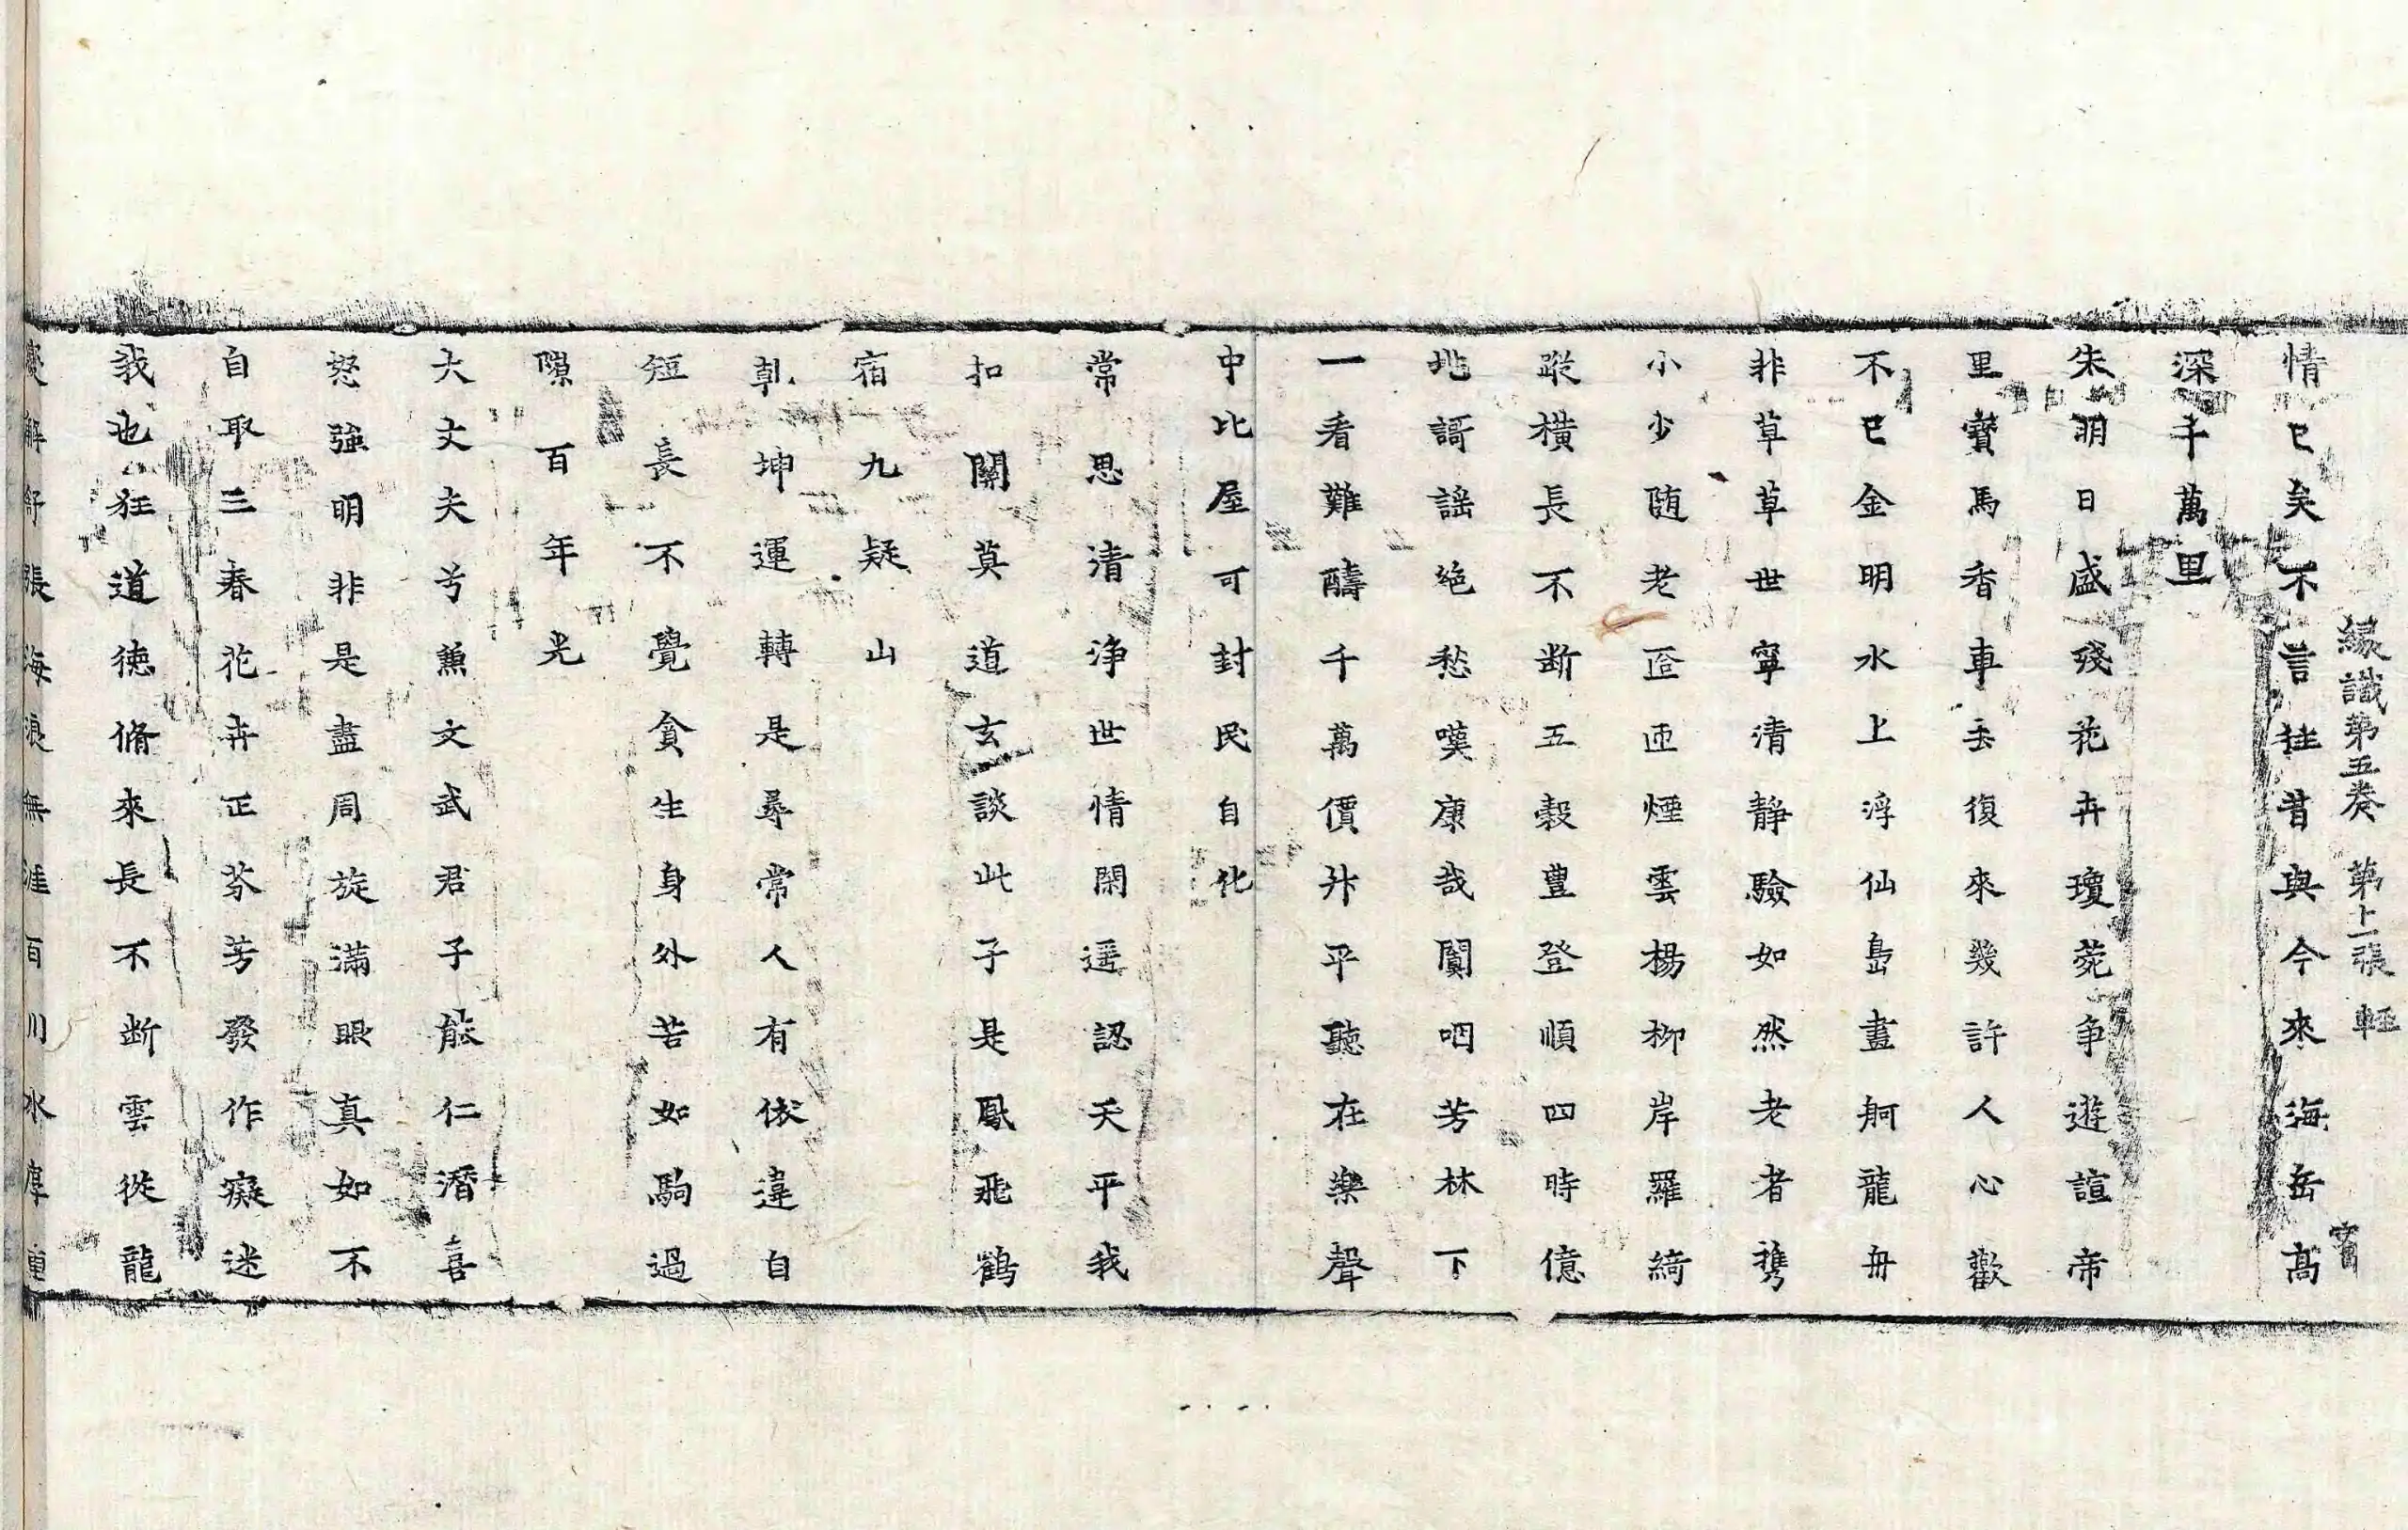 縁識第五巻 第上張 輕
情已矣不言往昔與今來海岳髙
深千萬里
朱明日盛殘花卉瓊菀争遊諠帝
里寳馬香車去復來幾許人心歡
不已金明水上浮仙島畫舸龍舟
非草草世寧清静驗如然老者携
小少随老匼匝煙雲楊柳岸羅綺
蹤横長不断五穀豊登順四時億
兆謌謡絶愁嘆康哉闤咽芳林下
一看難醻千萬價升平聽在樂聲
中比屋可封民自化
常思清浄世情閑遥認天平我
扣關莫道玄談此子是鳳飛鶴
宿九疑山
乹坤運轉是尋常人有依違自
短長不覺貪生身外苦如駒過
隙百年光
大丈夫兮兼文武君子能仁潛喜
怒強明非是盡周旋滿眼真如不
自取三春花卉正芬芳發作癡迷
我也狂道徳脩來長不断雲従龍
解舒張海浪無涯百川水厚重